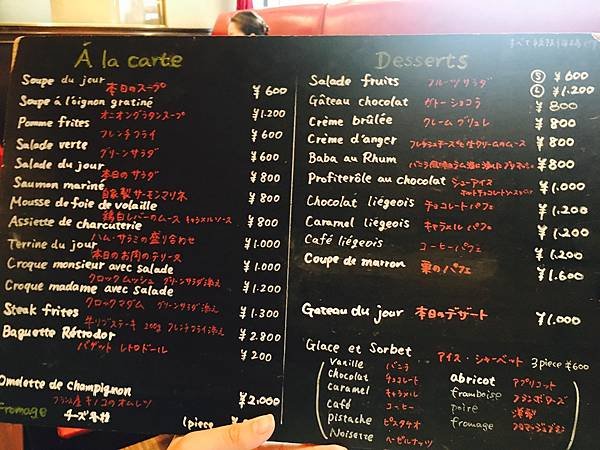 À la carte
Soupe du jour
本日のスープ ¥600
Soupe à l'oignon gratiné
オニオングラタンスープ ¥1.200
Pomme frites
フレンチフライ ¥600
Salade verte
グリーンサラダ ¥600
Salade du jour
本日のサラダ ¥800
Saumon mariné
自家製サーモンマリネ ¥800
Mousse de foie de volaille
鶏白レバーのムース キャラメルソース ¥800
Assiette de charcuterie
ハム・サラミの盛り合わせ ¥1.000
Terrine du jour
本日のお肉のテリーヌ ¥1.000
Croque monsieur avec salade
クロックムッシュ グリーンサラダ添え ¥1.200
Croque madame avec salade
クロックマダム グリーンサラダ添え ¥1.300
Steak frites
牛リブステーキ 200g フレンチフライ添え ¥2.800
Baguette Rétrodor
バゲット レトロドール ¥200
Omelette de champignon
キノコのオムレツ ¥2,000
Fromage
チーズ各種 (1piece
Desserts
Salade fruits フルーツサラダ Ⓢ ¥600
Ⓛ ¥1.200
Gâteau chocolat ガトーショコラ ¥800
Crème brûlée クレームブリュレ ¥800
Crème d'anger フレッシュチーズと生クリームのムース ¥800
Baba au Rhum ¥800
Profiterôle au chocolat シューアイス ¥1.000
Chocolat liégeois チョコレートパフェ ¥1.200
Caramel liégeois キャラメルパフェ ¥1.200
Café liégeois コーヒーパフェ ¥1.200
Coupe de marron 栗のパフェ ¥1.600
Gateau du jour 本日のデザート ¥1.000
Glace et Sorbet アイス・シャーベット 3piece ¥600
Vanille バニラ
Chocolat チョコレート
Caramel キャラメル
Café コーヒー
pistache ピスタチオ
Noisette ヘーゼルナッツ
abricot アプリコット
framboise フランボワーズ
poire 洋梨
fromage フロマージュブラン